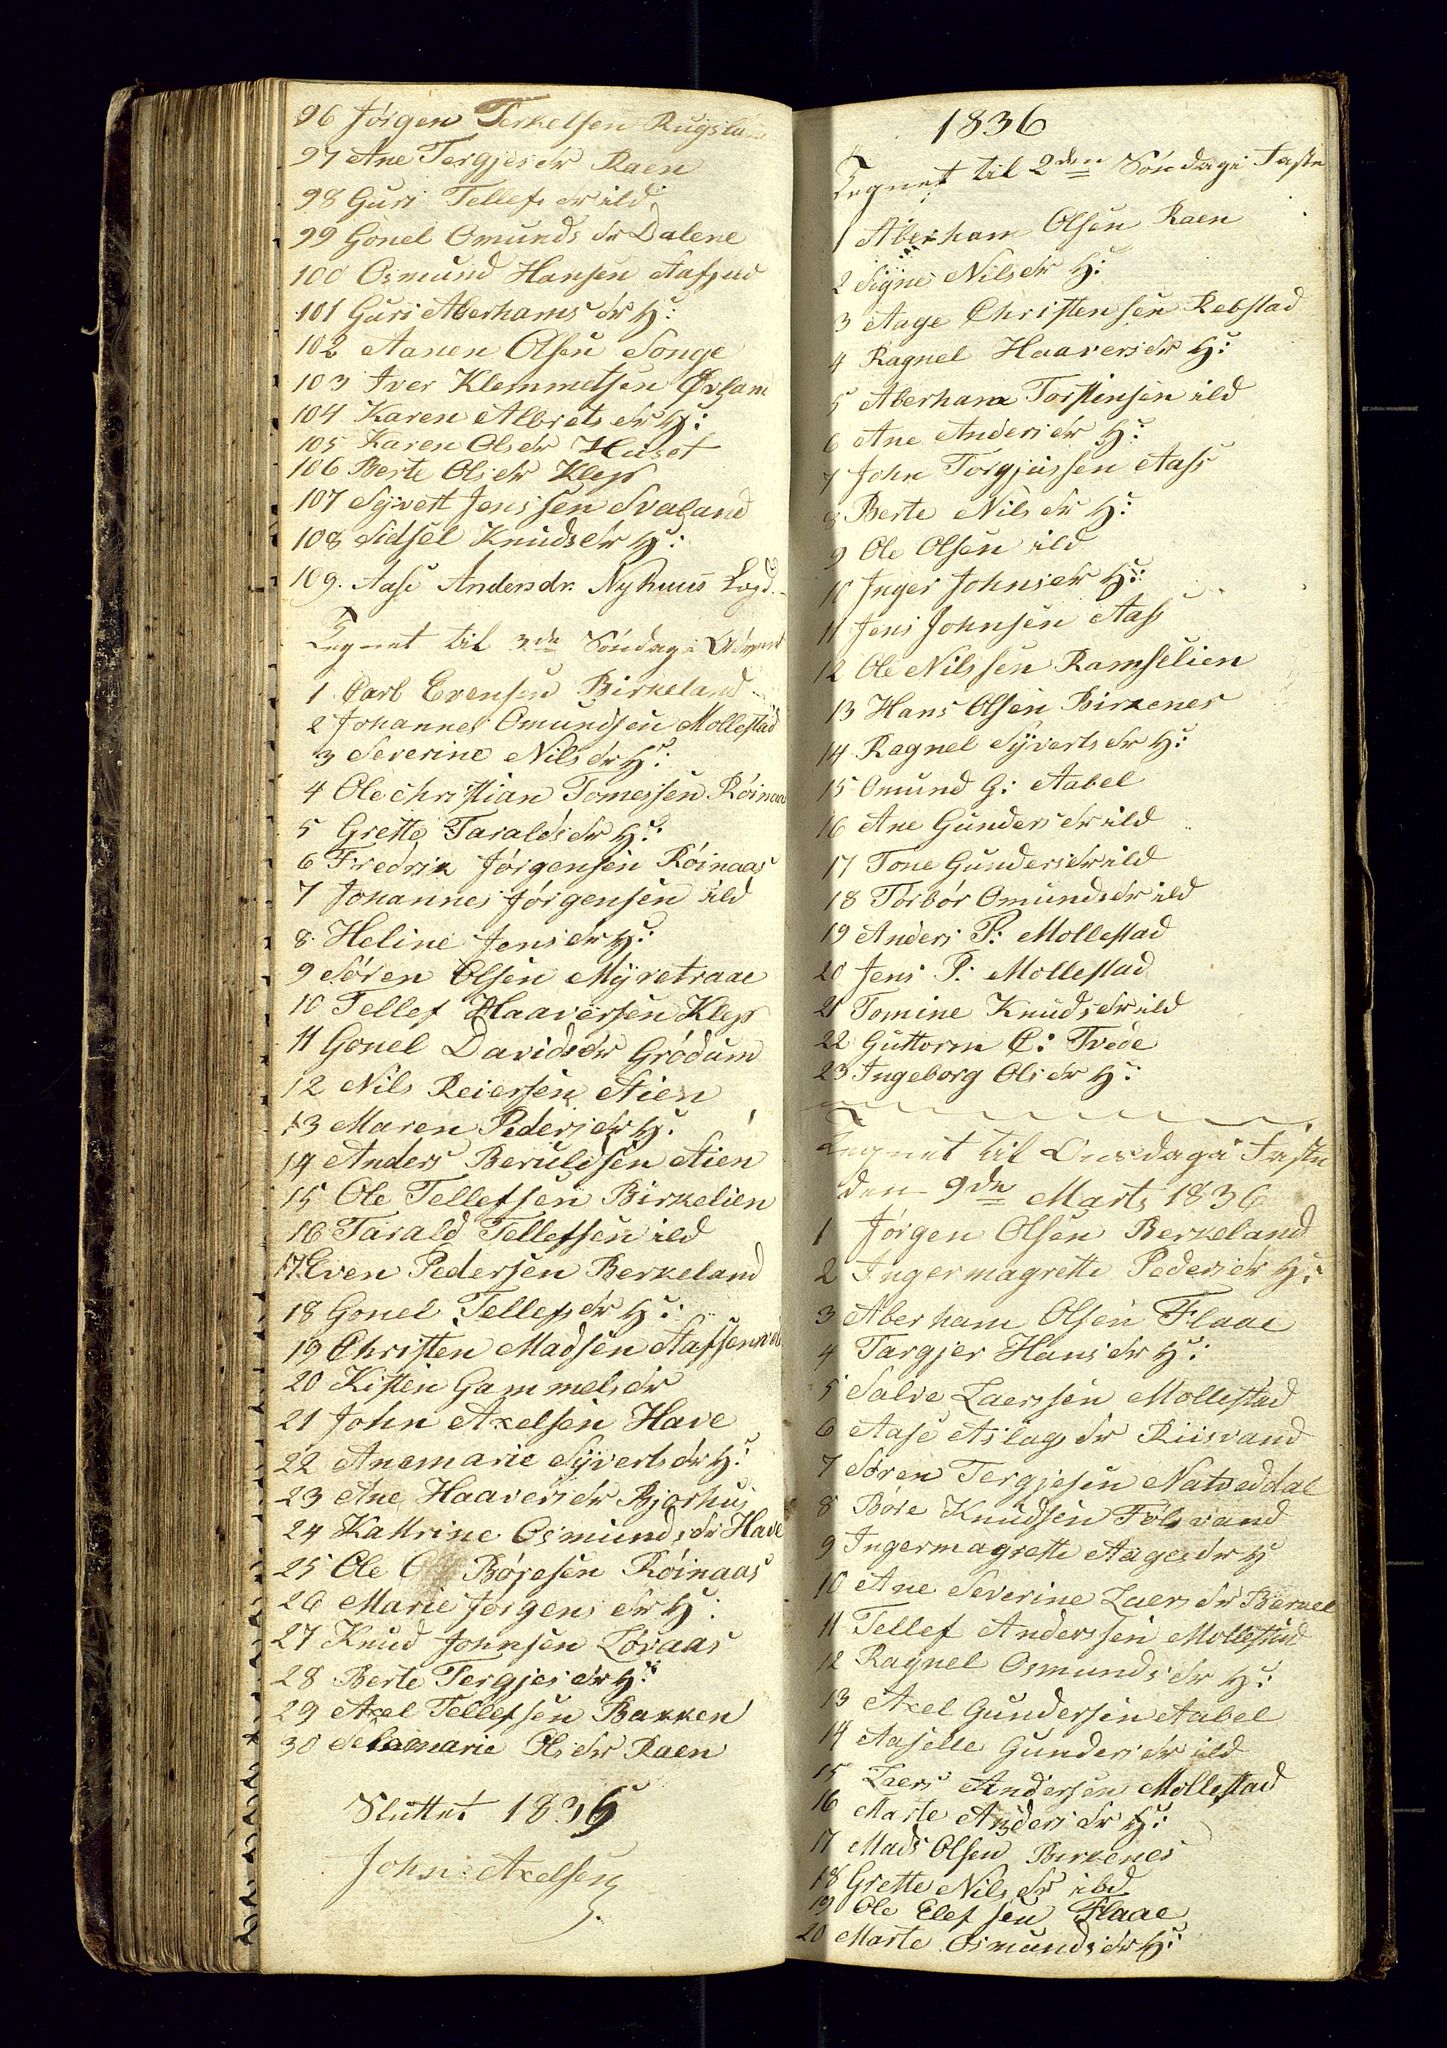 96 Jørgen Terkelsen
97 Ane Tergjesdr Raen
98 Guri Tellefsdr ibd
99 Gonel Omundsdr Dalene
100 Osmund Hansen
101 Guri Aberhamsdr H:
102 Aanen Olsen Songe
103 Iver Klemmetsen
104 Karen Albretsdr H:
105 Karen Olsdr Huset
106 Berte Olsdr Klep
107 Syvert Jenssen Svaland
108 Sidsel Knudsdr H:
109. Aase Andersdr. Nyhuus
Tegnet til 3de Søndag i Advent
1 Carl Evensen Birkeland
2 Johannes Omundsen Mollestad
3 Severine Nilsdr H:
4 Ole Christian Tomessen Röinaas
5 Grette Taraldsdr H:
6 Fredrik Jörgensen Röinaas
7 Johannes Jörgensen ibd
8. Heline Jensdr H:
9 Søren Olsen Myretraae
10 Tellef Haaversen Klep
11 Gonel Davidsdr Grödum
12 Nils Reiersen Aien
13 Maren Pedersdr H:
14 Anders Beruldsen Aien
15 Ole Tellefsen Birkelien
16 Tarald Tellefsen ibd
17 Even Pedersen Berkeland
18 Gonel Tellefsdr H:
19 Christen Madsen
20 Kisten Gammelsdr
21 John Axelsen Have
22 Anemarie Syvertsdr H:
23 Ane Haaversdr Bjorhus
24 Kattrine Osmundsdr Have
25 Ole Börjesen Röinaas
26 Marie Jörgensdr H:
27 Knud Johnsen Lövaas
28 Berte Tergjesdr H:
29 Axel Tellefsen Bakken
30 Olsdr Raen
Sluttet 1835
John Axelsen
1836
Tegnet til 2den Söndag i Faste
1 Aberham Olsen Raen
2 Signe Nilsdr H:
3 Aage Christensen Rebstad
4 Ragnel Haaversdr H:
5 Aberham Torstinsen ibd
6 Ane Andersdr H:
7 John Torgjussen Aass
8 Berte Nilsdr H:
9 Ole Olsen ibd
10 Inger Johnsdr H:
11 Jens Johnsen Aass
12 Ole Nilssen Ramselien
13 Hans Olsen Birkenes
14 Ragnel Syvertsdr H:
15 Omund G: Aabel
16 Ane Gundersdr ibd
17 Tone Gundersdr ibd
18 Torbör Omundsdr ibd
19 Anders P: Mollestad
20 Jens P: Mollestad
21 Tomine Knudsdr ibd
22 Guttorm C: Tvede
23 Ingeborg Olsdr H:
Tegnet til Onsdag i Faste
den 9de Marts 1836
1 Jørgen Olsen Berkeland
2 Ingermagrette Pedersdr H:
3 Aberham Olsen Flaae
4 Targjer Hansdr H:
5 Salve Laerssen Mollestad
6 Aase Aslagsdr Riisvand
7 Søren Tergjesen Natveddal
8 Böre Knudsen Fölsvand
9 Ingermagrette Aagesdr H
10 Ane Severine Laersdr
11 Tellef Anderssen Mollestad
12 Ragnel Osmundsdr H:
13 Axel Gundersen Aabel
14 Aaselle Gundersdr ibd
15 Laers Andersen Mollestad
16 Marte Andersdr H:
17 Mads Olsen Birkenes
18 Grette Nilsdr ibd
19 Ole Elefsen Flaae
20 Marte Osmundsdr H: